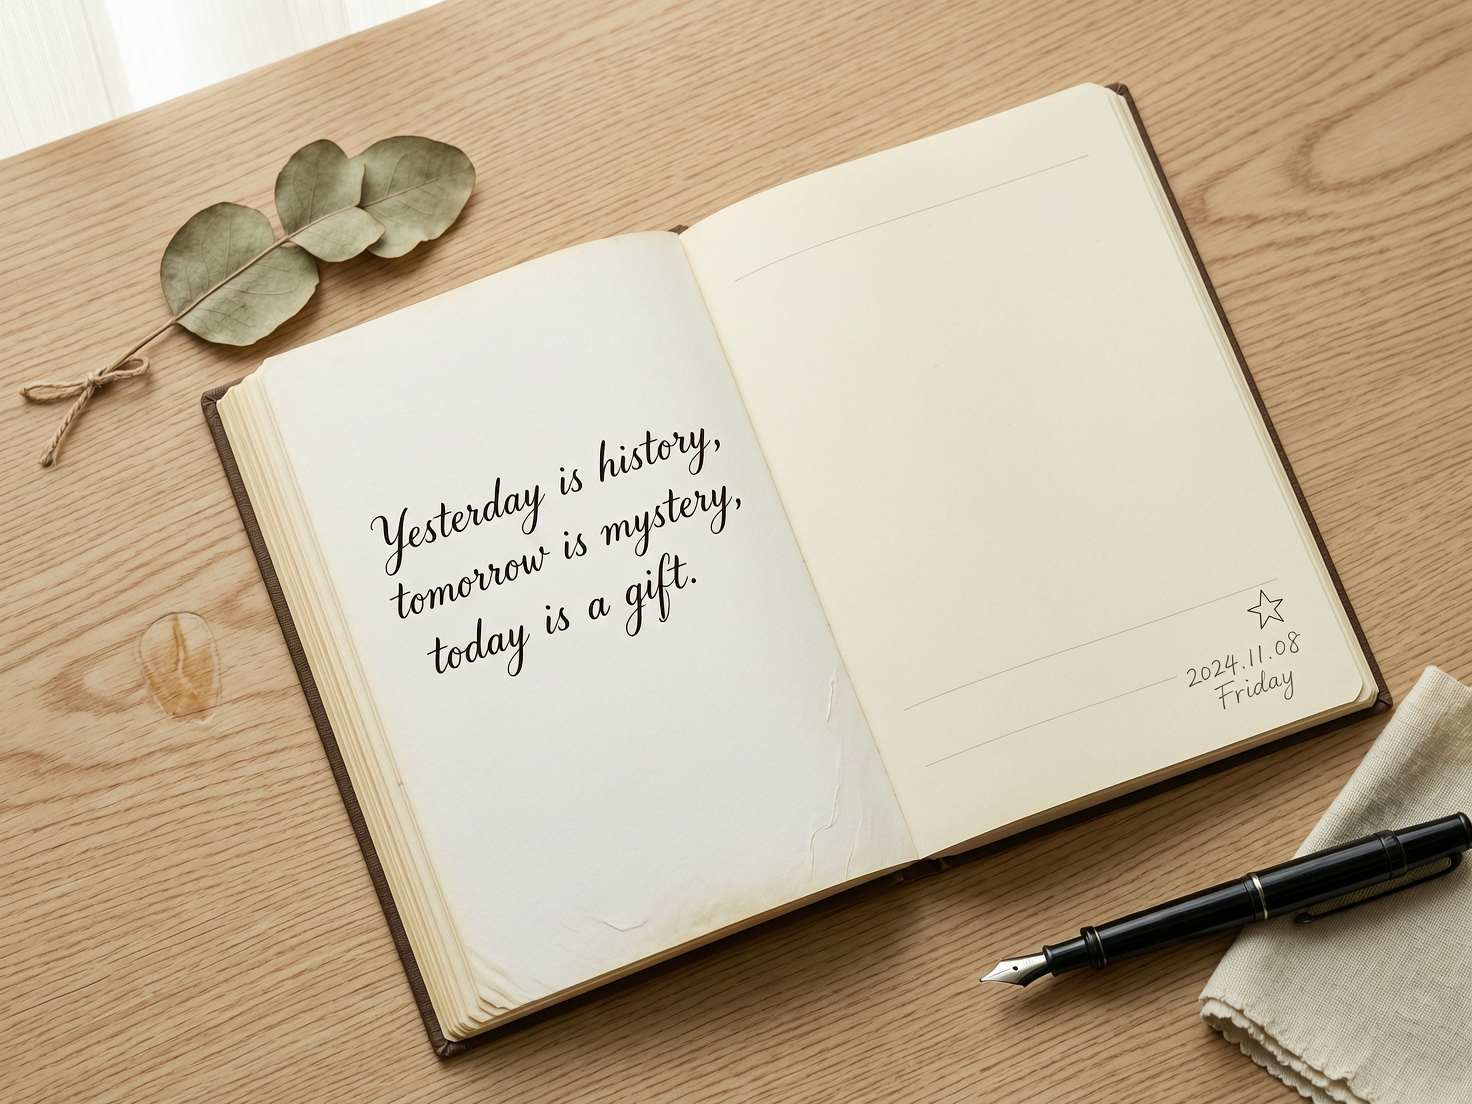 Yesterday is history,
tomorrow is mystery,
today is a gift.
2024.11.08
Friday